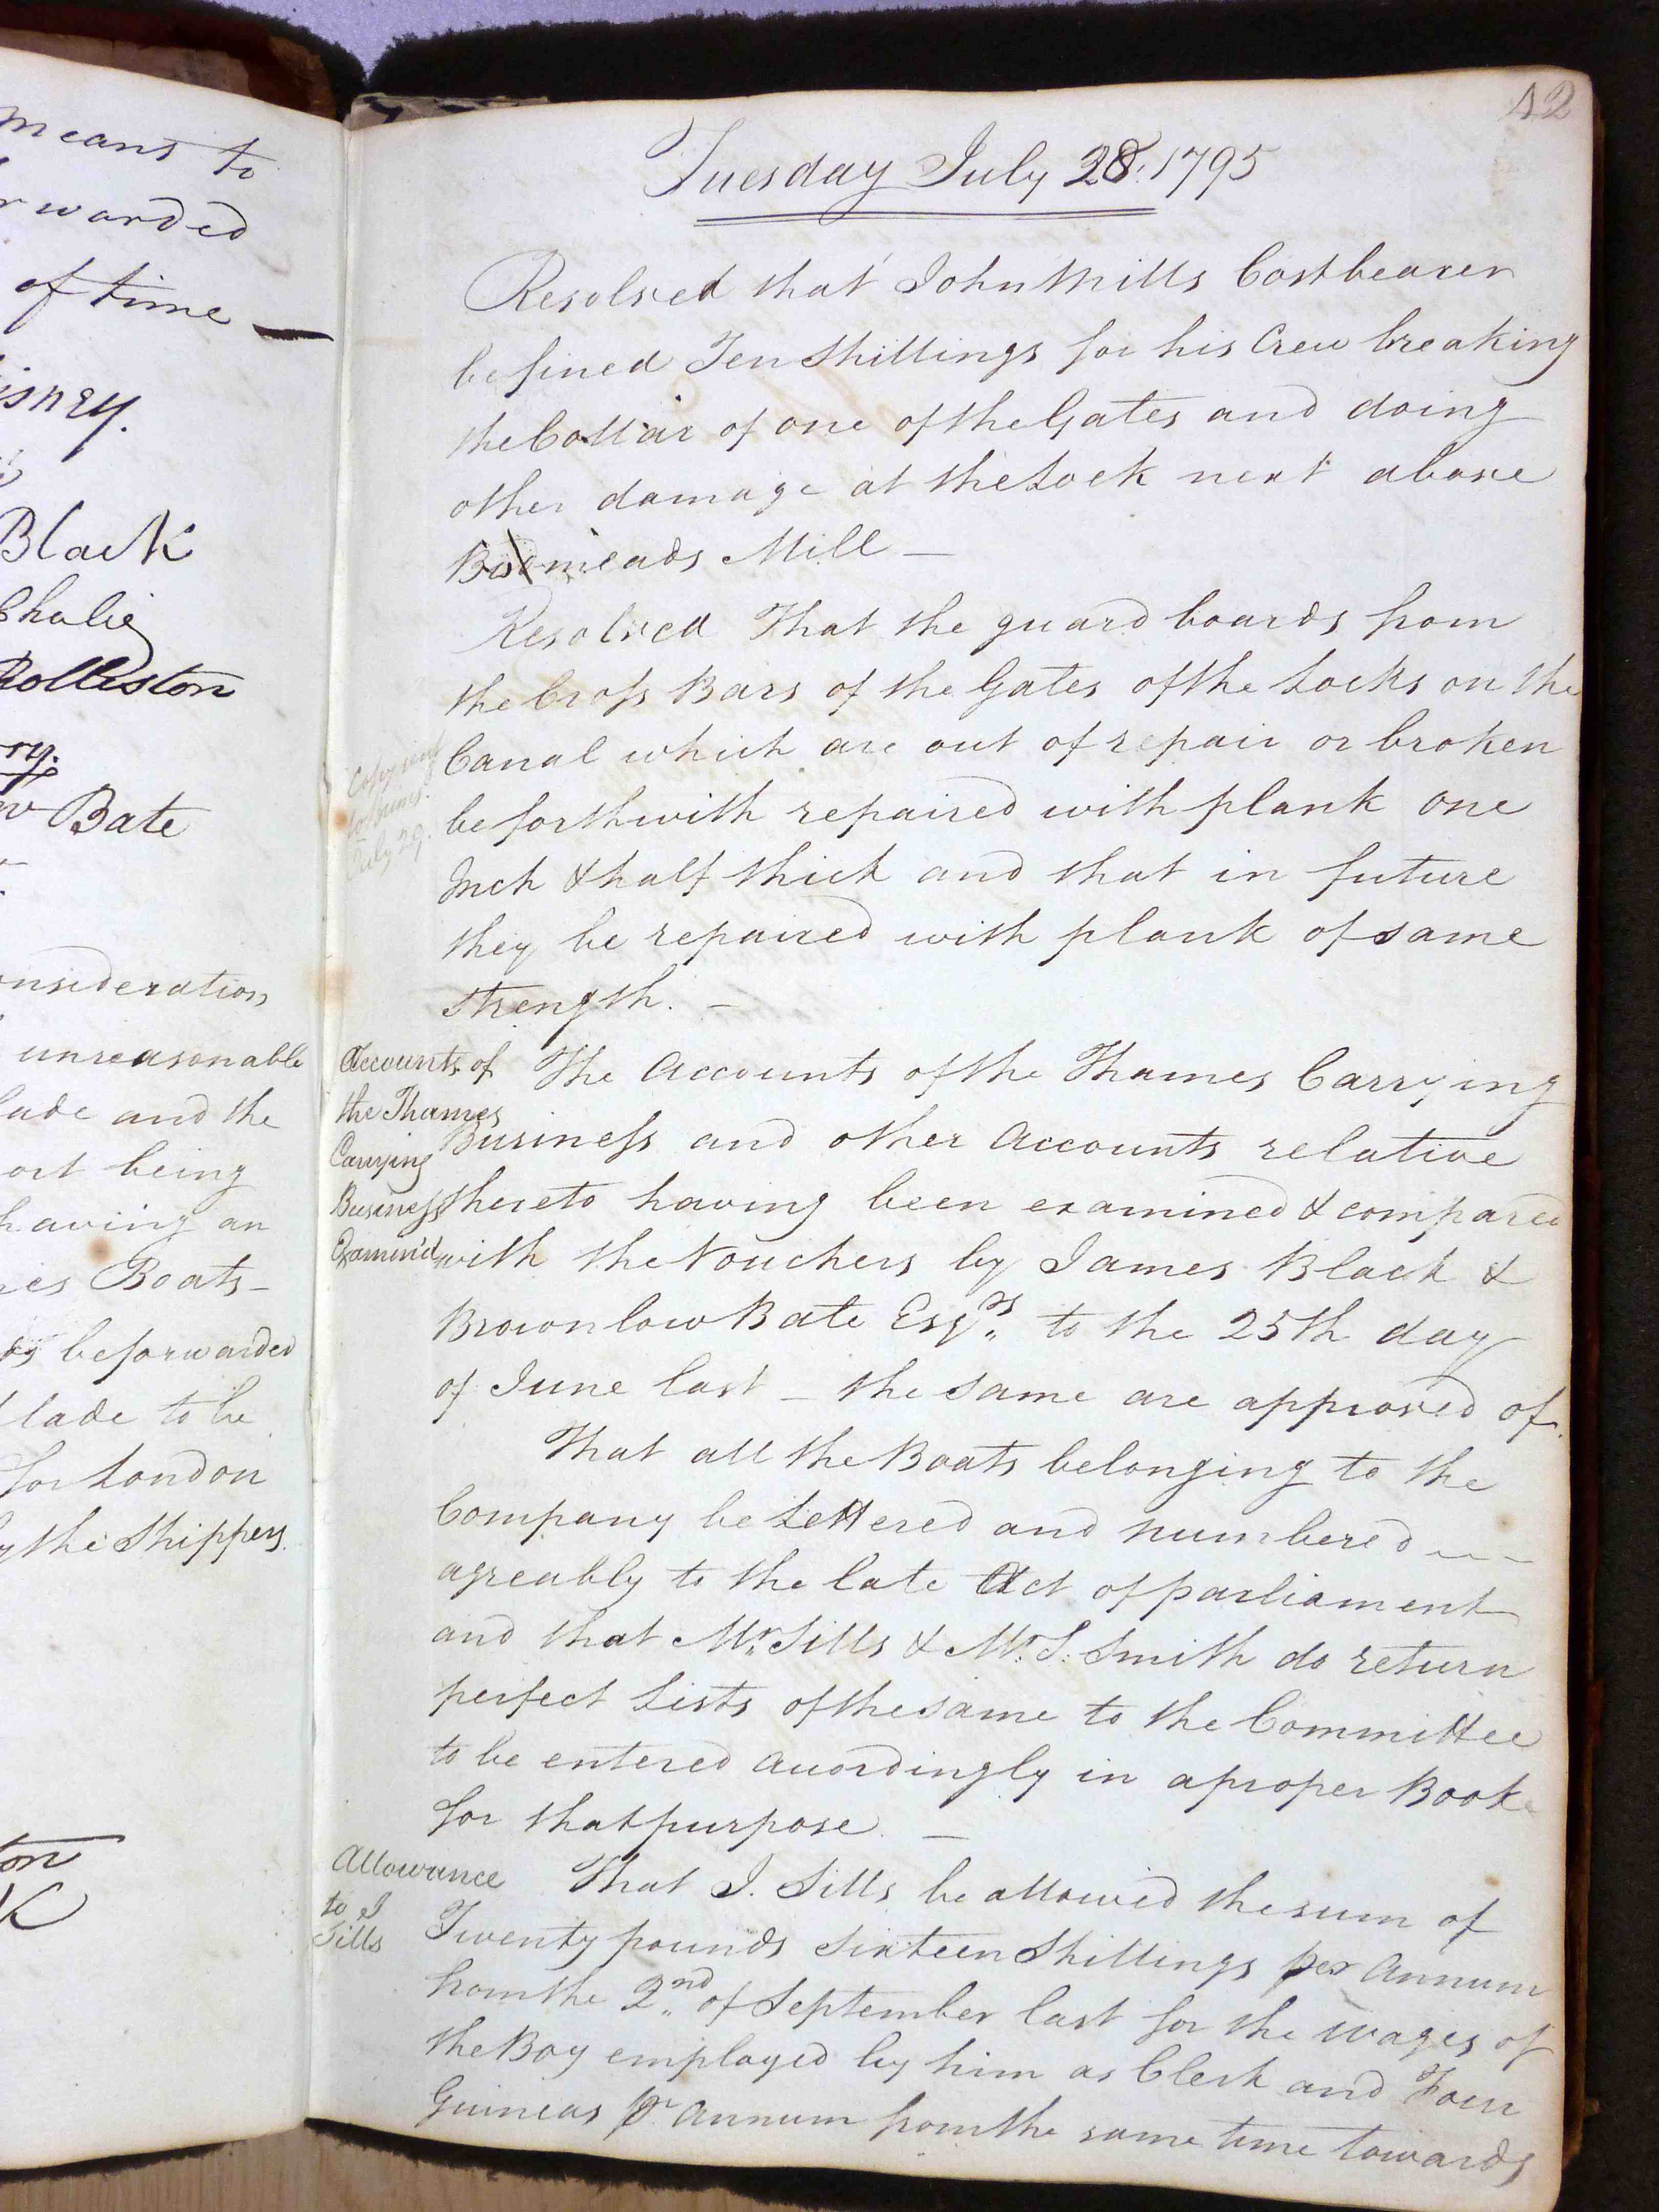 means to
rwarded
of time —
isney.
Black
Chalié
Rolleston
ry.
w Bate
onsideration
unreasonable
lade and the
ort being
having an
es Boats –
beforwarded
lade to be
for London
y the Shippers.
ton
K
42
Tuesday July 28. 1795
Resolved that John Mills Costbearer
be fined Ten Shillings for his Crew breaking
the Collar of one of the Gates and doing
other damage at the Lock next above
meads Mill —
Resolved That the guard boards from
the Cross Bars of the Gates of the Locks on the
Canal which are out of repair or broken
be forthwith repaired with plank one
Inch & half thick and that in future
they be repaired with plank of same
strength. —
Copy sent
July 29.
Accounts of
the Thames
Carrying
Business
Examin'd
The Accounts of the Thames Carrying
Business and other Accounts relative
thereto having been examined & compared
with the Vouchers by James Black &
Brownlow Bate Esqrs. to the 25th day
of June last – the same are approved of.
That all the Boats belonging to the
Company be Lettered and numbered
agreably to the late Act of parliament
and that Mr. Sills & Mr. S. Smith do return
perfect Lists of the same to the Committee
to be entered accordingly in a proper Book
for that purpose. —
Allowance
to J
Sills
That J. Sills be allowed the sum of
Twenty pounds Sixteen Shillings per Annum
from the 2nd. of September last for the wages of
the Boy employed by him as Clerk and Four
Guineas pr Annum from the same time towards